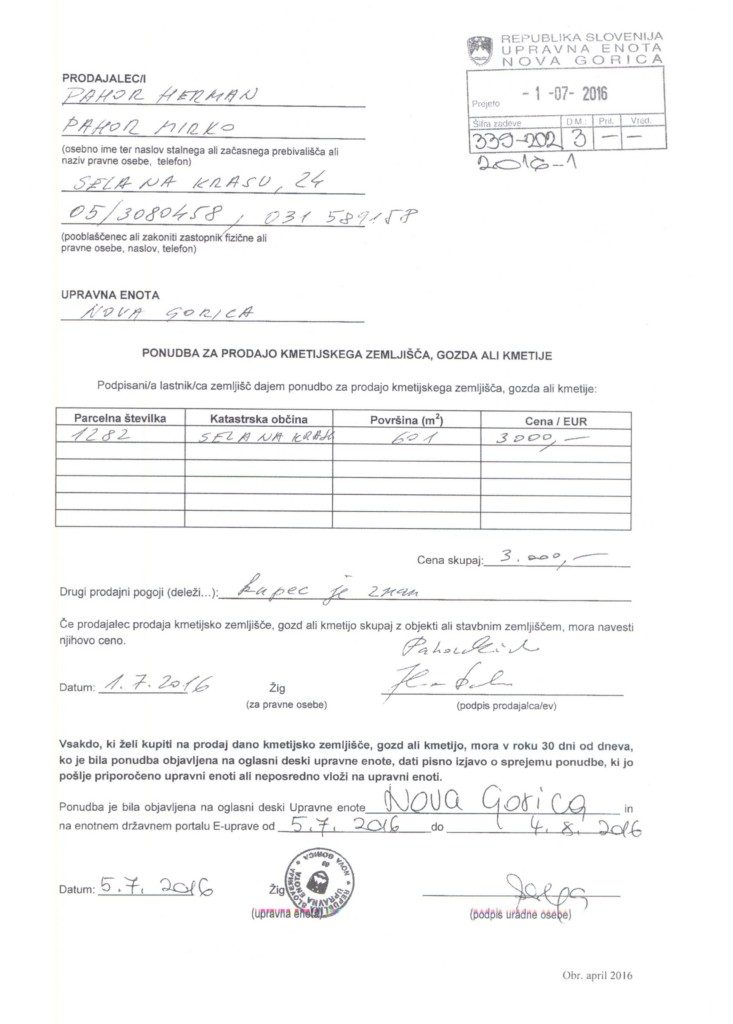 REPUBLIKA SLOVENIJA
UPRAVNA ENOTA
NOVA GORICA
Prejeto -1-07-2016
Šifra zadeve D M.: Pril. Vred.
339-202 3 — —
2016-1
PRODAJALEC/I
PAHOR HERMAN
PAHOR MIRKO
(osebno ime ter naslov stalnega ali začasnega prebivališča ali
naziv pravne osebe, telefon)
SELA NA KRASU, 24
05/3080458, 031 589158
(pooblaščenec ali zakoniti zastopnik fizične ali
pravne osebe, naslov, telefon)
UPRAVNA ENOTA
NOVA GORICA
PONUDBA ZA PRODAJO KMETIJSKEGA ZEMLJIŠČA, GOZDA ALI KMETIJE
Podpisani/a lastnik/ca zemljišč dajem ponudbo za prodajo kmetijskega zemljišča, gozda ali kmetije:
Parcelna številka Katastrska občina Površina (m²) Cena / EUR
1282 SELA NA KRASU 601 3000,—
Cena skupaj: 3.000,—
Drugi prodajni pogoji (deleži...): kupec je znan
Če prodajalec prodaja kmetijsko zemljišče, gozd ali kmetijo skupaj z objekti ali stavbnim zemljiščem, mora navesti
njihovo ceno.
Datum: 1.7.2016 Žig
(za pravne osebe) (podpis prodajalca/ev)
Vsakdo, ki želi kupiti na prodaj dano kmetijsko zemljišče, gozd ali kmetijo, mora v roku 30 dni od dneva,
ko je bila ponudba objavljena na oglasni deski upravne enote, dati pisno izjavo o sprejemu ponudbe, ki jo
pošlje priporočeno upravni enoti ali neposredno vloži na upravni enoti.
Ponudba je bila objavljena na oglasni deski Upravne enote Nova Gorica in
na enotnem državnem portalu E-uprave od 5.7. 2016 do 4.8. 2016
Datum: 5.7. 2016 Žig
(upravna enota) (podpis uradne osebe)
Obr. april 2016